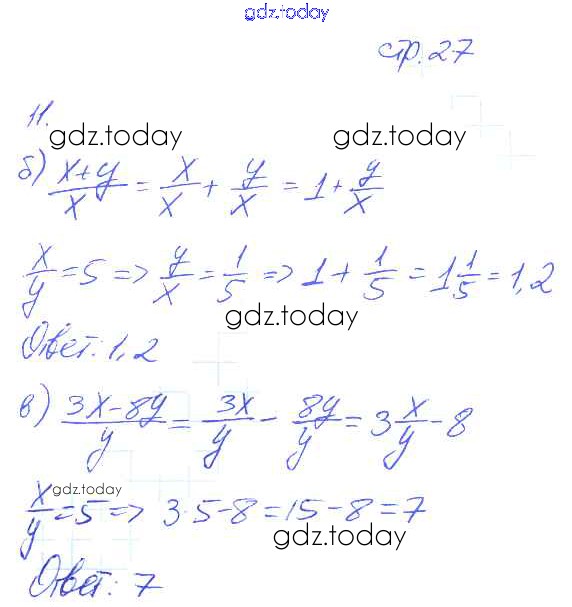 gdz.today
стр.27
11.
gdz.today gdz.today
б) (x+y)/x = x/x + y/x = 1 + y/x
x/y = 5 => y/x = 1/5 => 1 + 1/5 = 1 1/5 = 1,2
gdz.today
Ответ: 1,2
в) (3x-8y)/y = 3x/y - 8y/y = 3 x/y - 8
gdz.today
x/y = 5 => 3·5-8=15-8=7
gdz.today
Ответ: 7